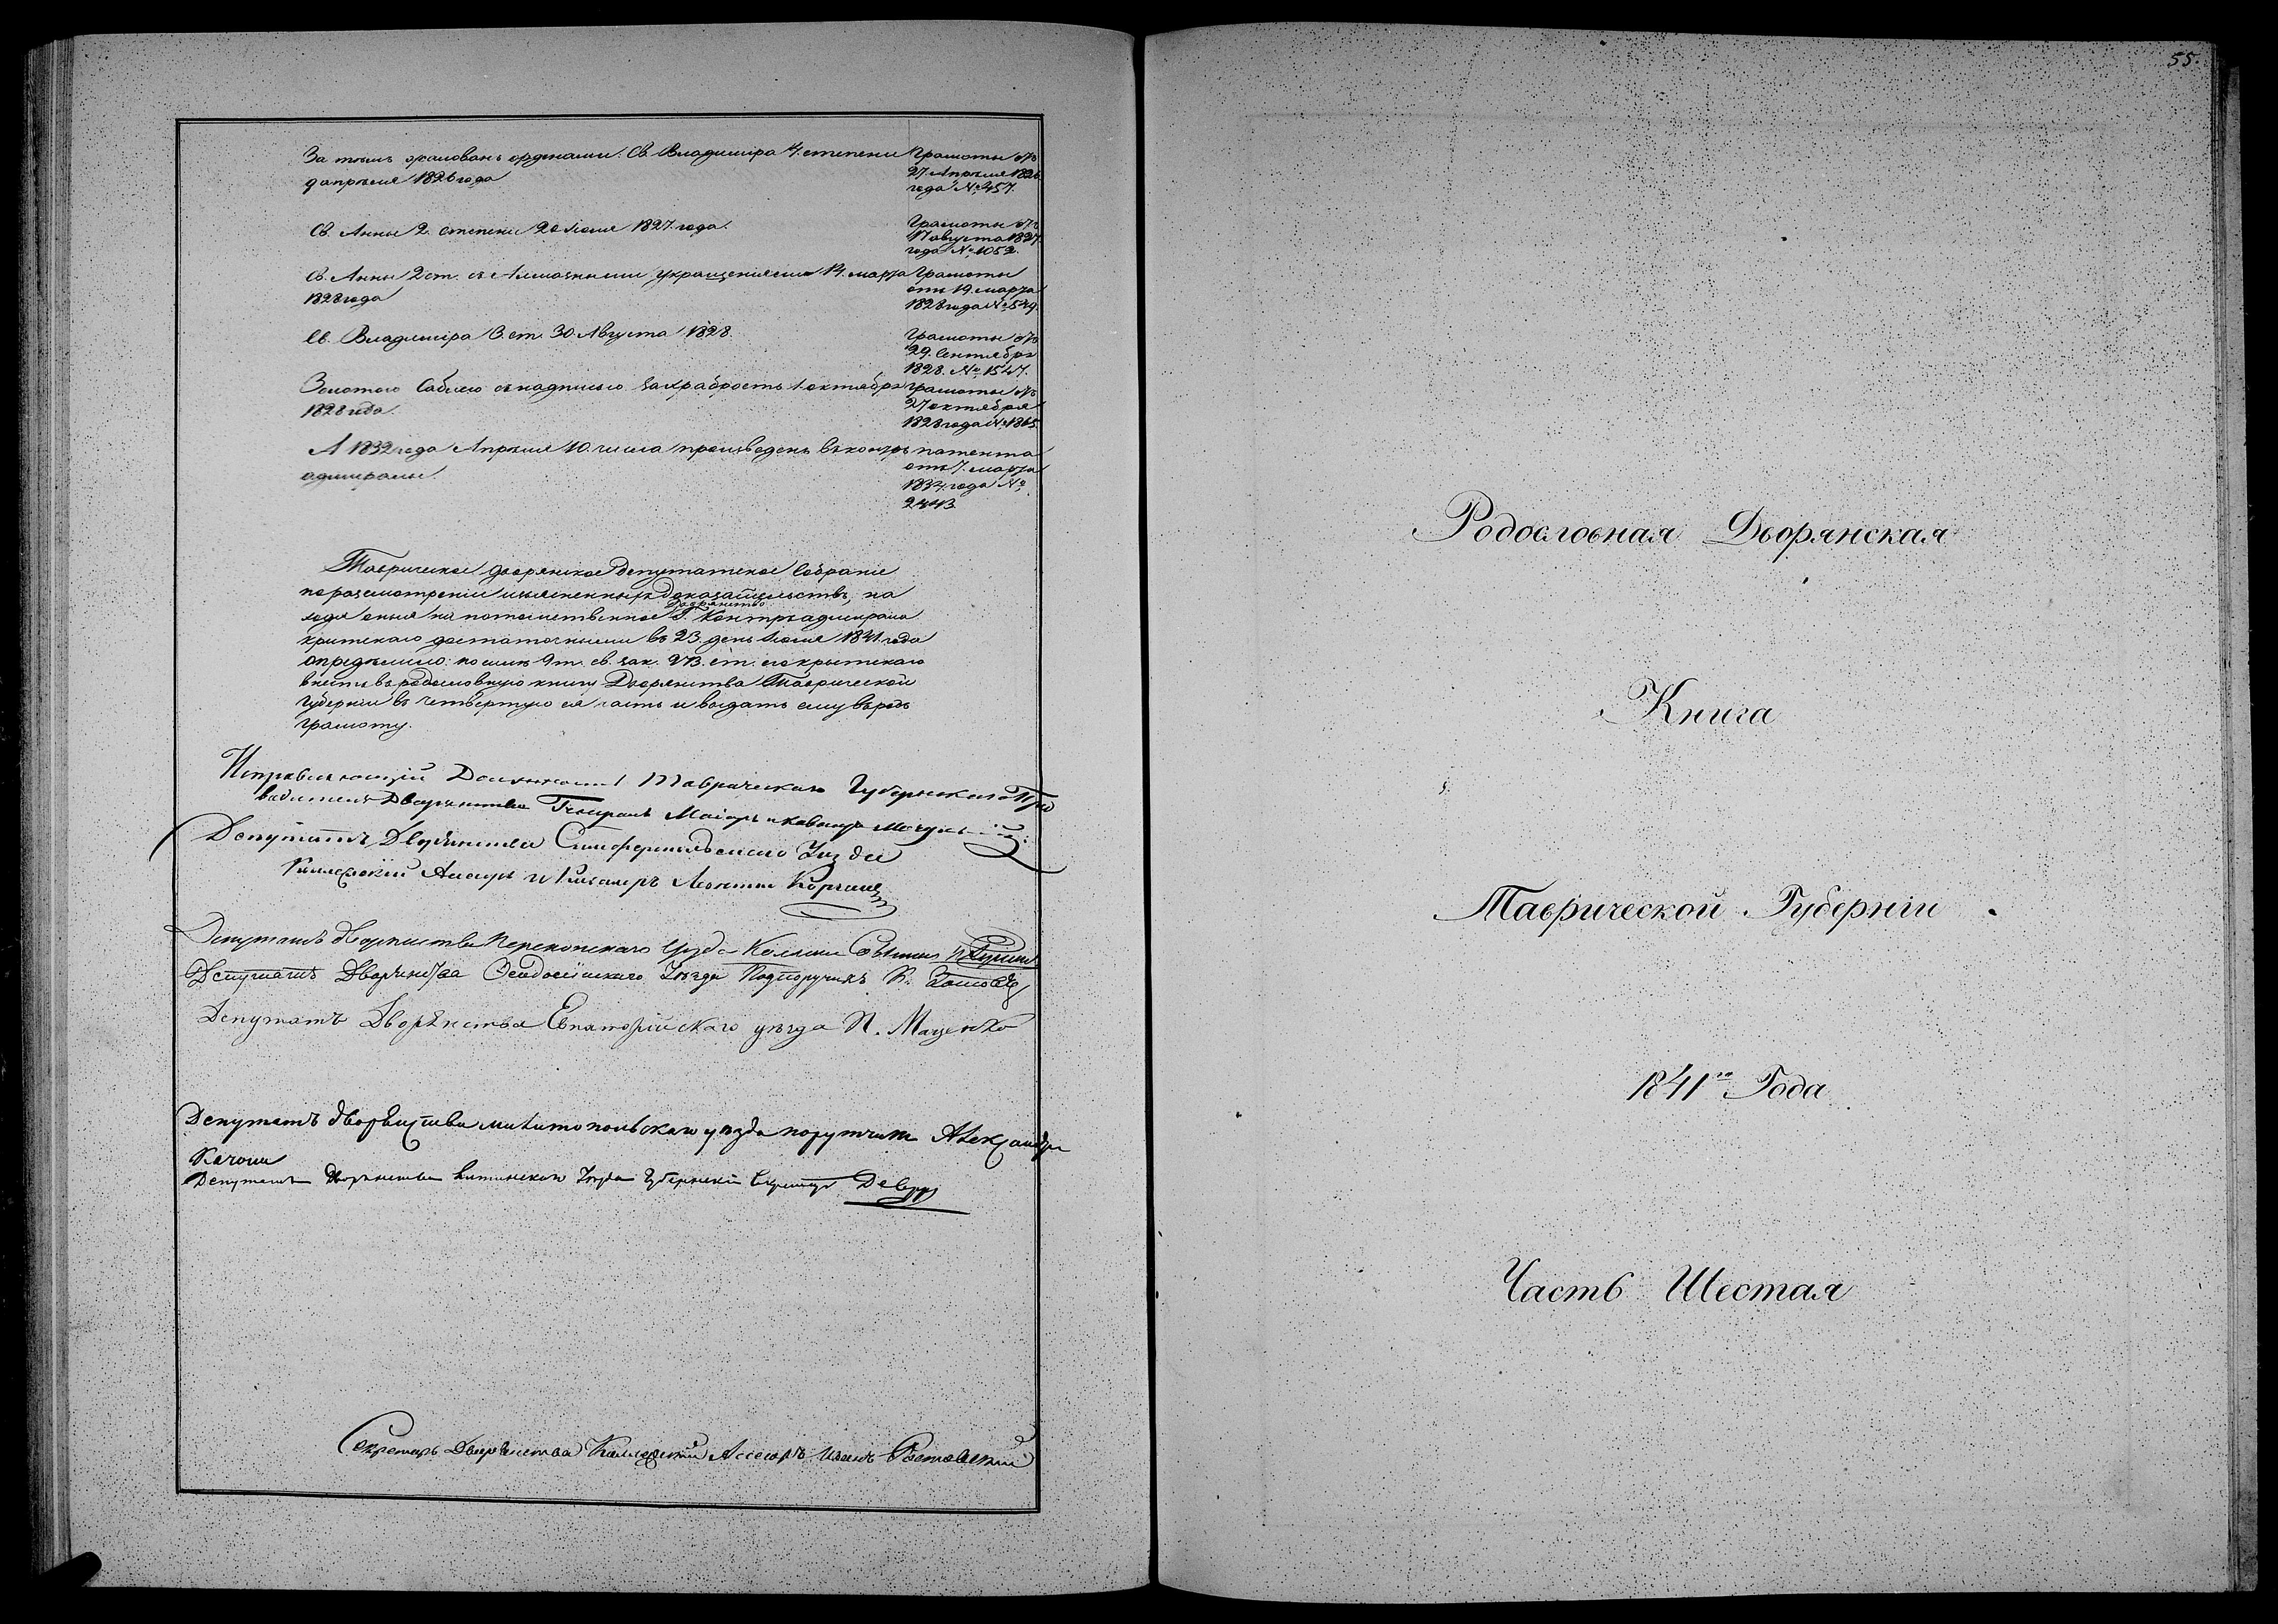 За тѣмъ жалованъ орденами: Св. Владиміра 4. степени
9 апрѣля 1826 года
Грамоты отъ
27. Апрѣля 1826
года № 457.
Св. Анны 2. степени 20 Іюля 1827. года.
Грамоты отъ
17 августа 1827
года № 1052.
Св. Анны 2 ст. съ Алмазными украшеніями 14. марта
1828 года
Грамоты
отъ 19. марта
1828 года № 549.
Св. Владиміра 3. ст. 30 Августа 1828.
Грамоты отъ
29. Сентября
1828. № 1547.
Золотою Саблею съ надписью за храбрость 1. октября
1828 года.
Грамоты отъ
27 октября
1828 года № 1865
А 1832 года Апрѣля 10. числа произведенъ въ контръ
адмиралы.
патента
отъ 7. марта
1834. года №
2443.
Таврическое дворянское депутатское собраніе
по разсмотреніи изъясненныхъ доказательствъ, на
ходя оныя на потомственное дворянство Г. Контръ адмирала
Критскаго достаточными въ 23. день Іюля 1841. года
опредѣлило: по силѣ 9 т. св. зак. 273. ст. его Крытскаго
внести въ родословную книгу Дворянства Таврической
Губерніи въ четвертую ея часть и выдать ему въ родъ
грамоту.
Исправляющій Должность Таврическаго Губернскаго Пред
водителя Дворянства Генералъ Маіоръ и кавалеръ
Депутатъ Дворянства Симферопольскаго Уезда
Коллежскій Асесоръ и Кавалеръ
Депутатъ дворянства Перекопскаго Уезда
Депутатъ Дворянства Ѳеодосійскаго Уѣзда Подпоручикъ
Депутатъ Дворянства Евпаторійскаго уѣзда П. Маценко
Депутатъ дворянства мелитопольскаго уѣзда порутчикъ Александръ
Качони
Депутатъ Дворянства Ялтинскаго Уѣзда Губернскій Секретарь
Секретарь Дворянства Коллежскій Ассесоръ Иванъ Ростовскій
55.
Родословная Дворянская
Книга
Таврической Губерніи
1841го Года
Часть Шестая